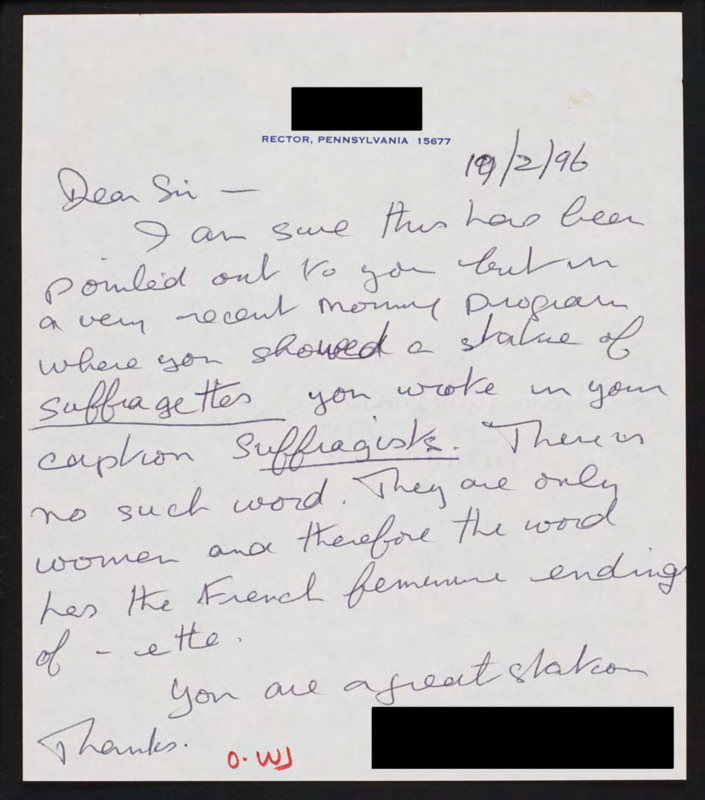 RECTOR, PENNSYLVANIA 15677
/2/96
Dear Sir —
I am sure this has been
pointed out to you but in
a very recent morning program
where you showed a statue of
suffragettes you wrote in your
caption Suffragists. There is
no such word. They are only
women and therefore the word
has the French feminine ending
of - ette.
You are a great station
Thanks.